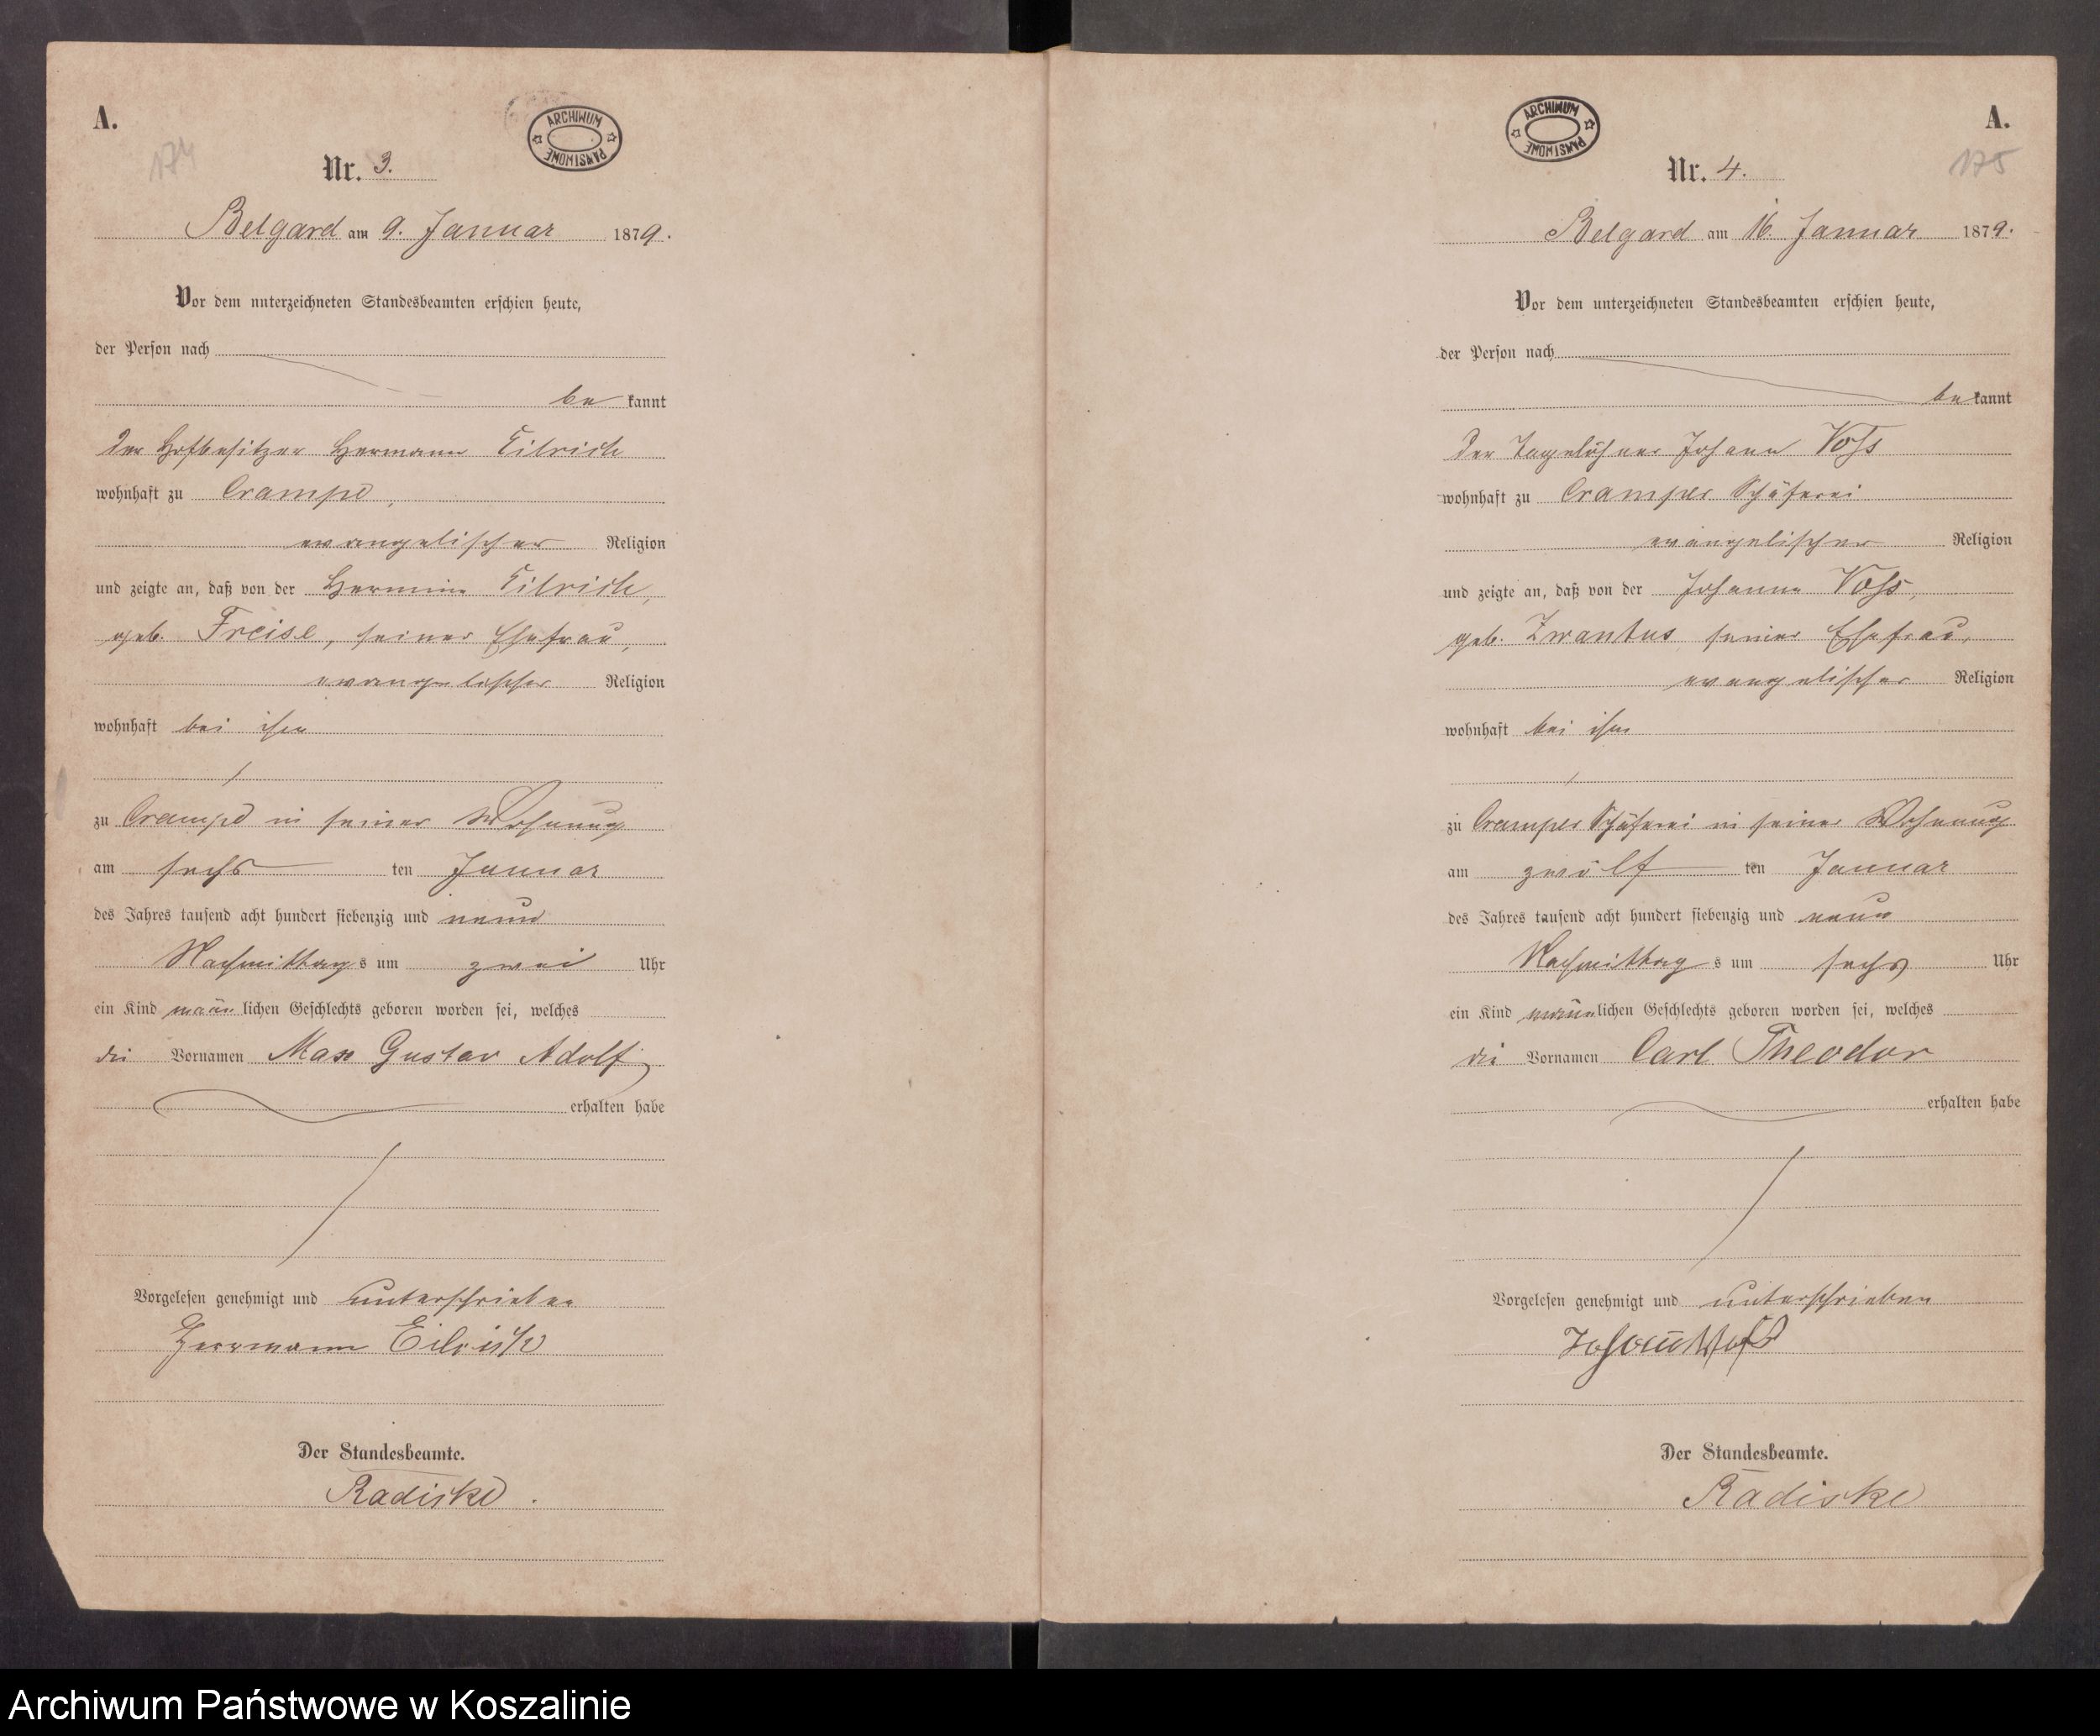 A.
174
Nr. 3.
ARCHIWUM PAŃSTWOWE
Belgard am 9. Januar 1879.
Vor dem unterzeichneten Standesbeamten erschien heute,
der Person nach
bekannt
der Hofbesitzer Hermann Eilrich
wohnhaft zu Crampe,
evangelischer Religion
und zeigte an, daß von der Hermine Eilrich,
geb. Freise, seiner Ehefrau,
evangelischer Religion
wohnhaft bei ihm
zu Crampe in seiner Wohnung
am sechsten Januar
des Jahres tausend acht hundert siebenzig und neun
Nachmittags um zwei Uhr
ein Kind männlichen Geschlechts geboren worden sei, welches
die Vornamen Max Gustav Adolf
erhalten habe
Vorgelesen genehmigt und unterschrieben
Herrmann Eilrich
Der Standesbeamte.
Radiske.
A.
175
Nr. 4.
ARCHIWUM PAŃSTWOWE
Belgard am 16. Januar 1879.
Vor dem unterzeichneten Standesbeamten erschien heute,
der Person nach
bekannt
der Tagelöhner Johann Voß
wohnhaft zu Cramper Schäferei
evangelischer Religion
und zeigte an, daß von der Johanne Voß,
geb. Zwantus, seiner Ehefrau,
evangelischer Religion
wohnhaft bei ihm
zu Cramper Schäferei in seiner Wohnung
am zwölften Januar
des Jahres tausend acht hundert siebenzig und neun
Nachmittags um sechs Uhr
ein Kind männlichen Geschlechts geboren worden sei, welches
die Vornamen Carl Theodor
erhalten habe
Vorgelesen genehmigt und unterschrieben
Johann Voß
Der Standesbeamte.
Radiske
Archiwum Państwowe w Koszalinie